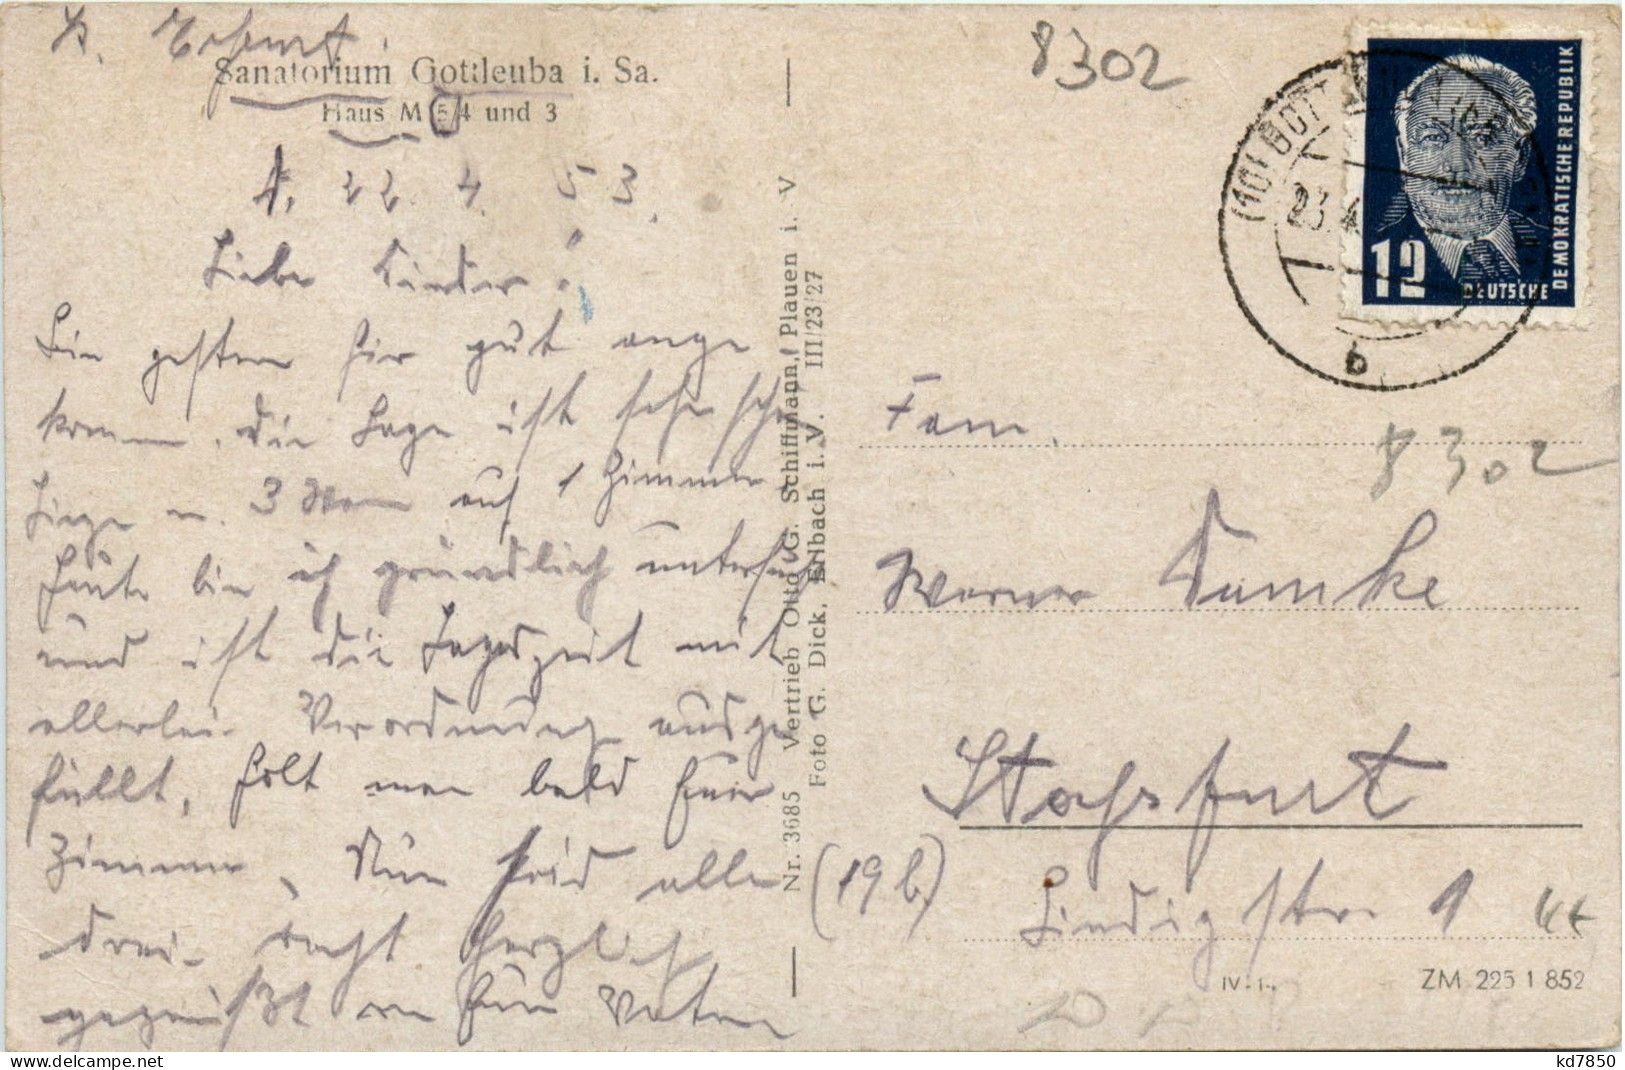 B. Erfurt.
Sanatorium Gottleuba i. Sa.
Haus M 5/4 und 3
d. 22. 4. 53.
Liebe Kinder!
Bin gestern hier gut ange
komm. Die Lage ist sehr schön
Liege m. 3 Mann auf 1 Zimmer.
Heute bin ich gründlich untersucht
und ist die Tageszeit mit
allerlei Verordnung ausge
füllt, hält man bald
Zimmer. Nun seid alle
drei recht herzlich
gegrüßt von Vater
Nr. 3685 Vertrieb Otto G. Schiffmann, Plauen i. V
Foto G. Dick, Erlbach i. V. III/23/27
8302
12
DEUTSCHE
DEMOKRATISCHE REPUBLIK
(10)
23.4
b
Fam.
8302
Werner Damke
Stassfurt
(19b)
Lindigstr. 9
IV-14
ZM 225 1 852
kd7850